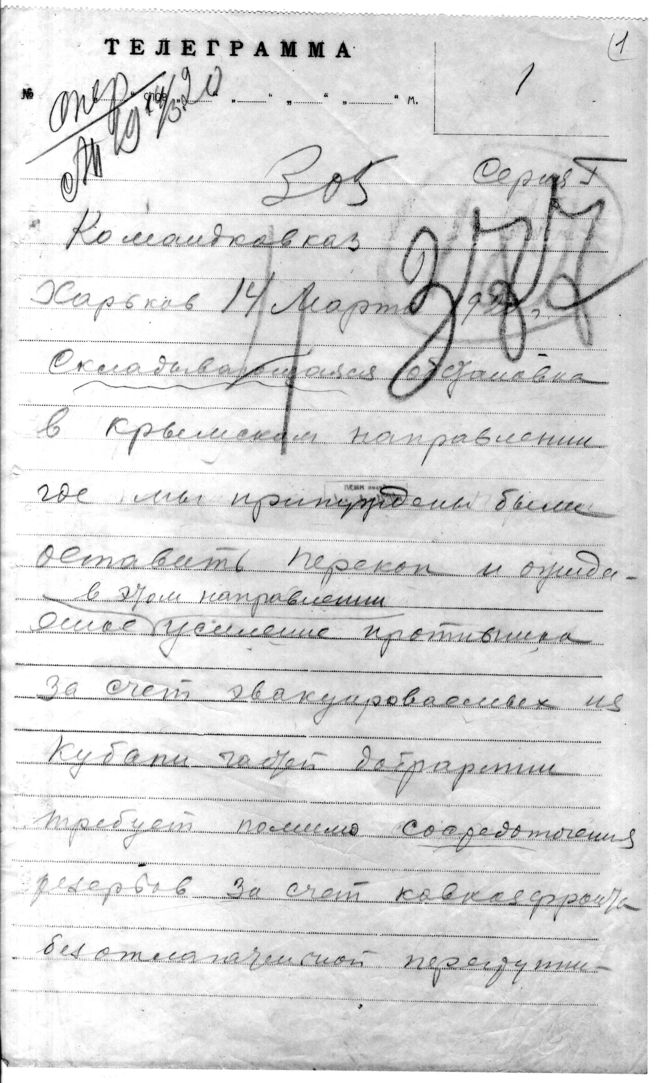 1
ТЕЛЕГРАММА
1
№ опер слов „ “ „ “ „ “ м.
от 19 20
305 Серия Г
Командкавказ
Харьков 14 Марта
Складывающаяся обстановка
в крымском направлении
где мы принуждены были
оставить Перекоп и ожида-
в этом направлении
емое усиление противника
за счет эвакуироваемых из
Кубани частей добрармии
требует помимо сосредоточения
резервов за счет кавказфронта
безотлагательной перегруппи-